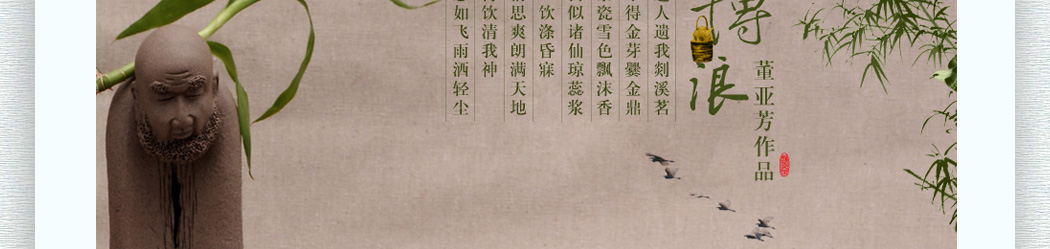 博浪
董亚芳作品
人遗我剡溪茗
得金芽爨金鼎
瓷雪色飘沫香
似诸仙琼蕊浆
饮涤昏寐
思爽朗满天地
饮清我神
如飞雨洒轻尘